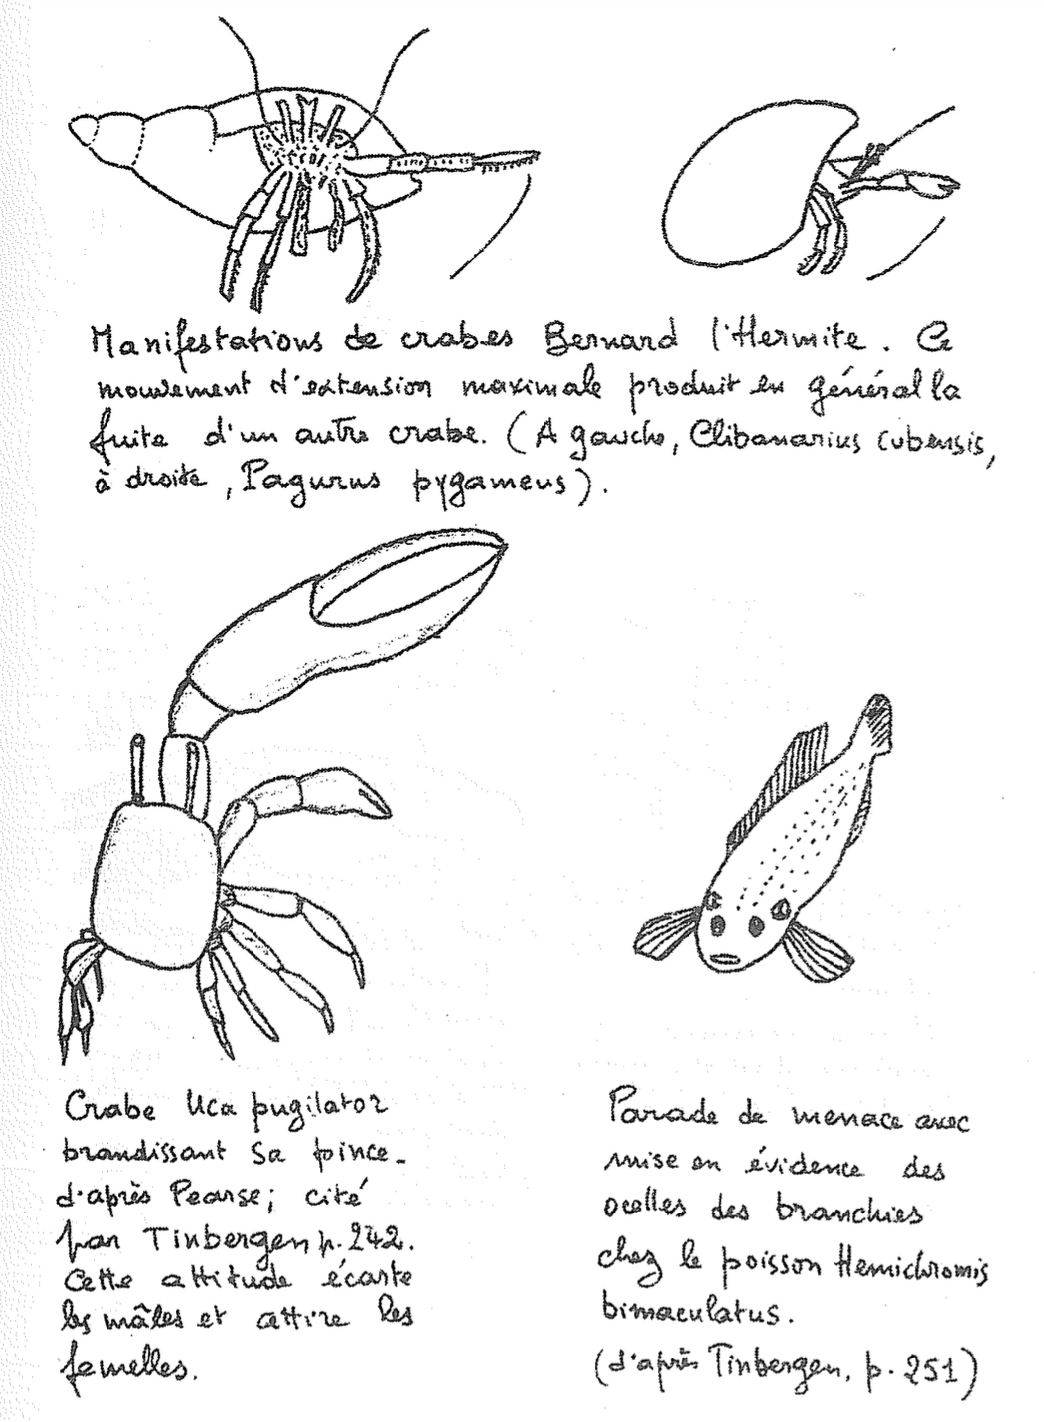 Manifestations de crabes Bernard l'Hermite. Ce
mouvement d'extension maximale produit en général la
fuite d'un autre crabe. (A gauche, Clibanarius cubensis,
à droite, Pagurus pygameus).
Crabe Uca pugilator
brandissant sa pince.
d'après Pearse; cité
par Tinbergen p. 242.
Cette attitude écarte
les mâles et attire les
femelles.
Parade de menace avec
mise en évidence des
ocelles des branchies
chez le poisson Hemichromis
bimaculatus.
(d'après Tinbergen, p. 251)